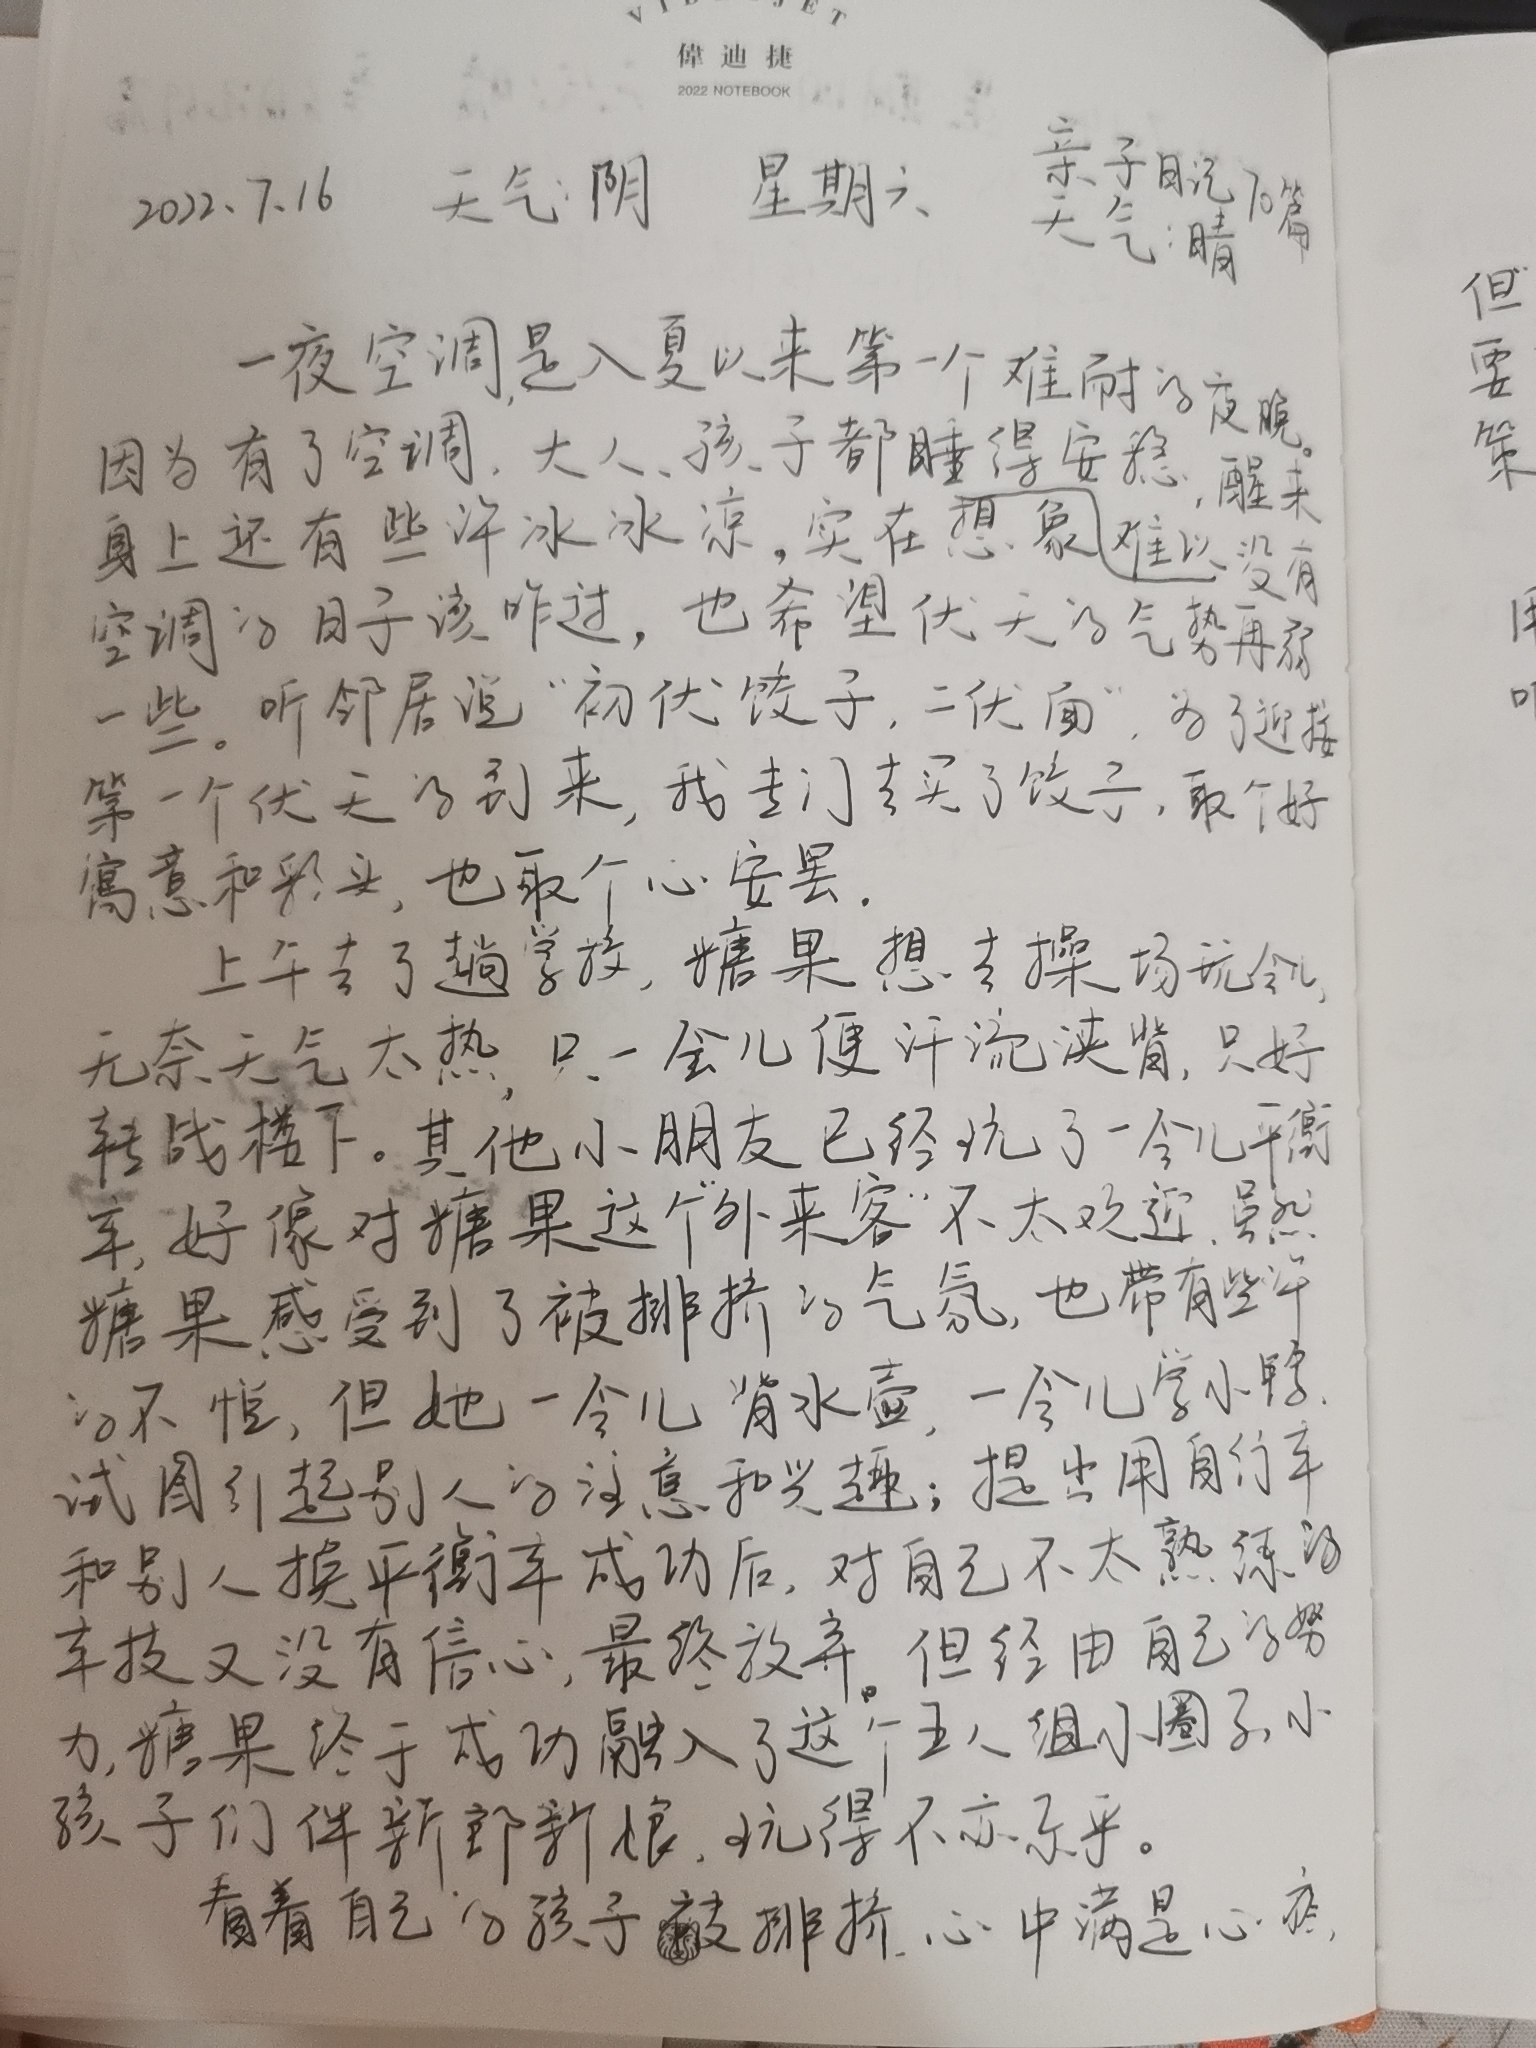 VIDEOJET
偉迪捷
2022 NOTEBOOK
2022.7.16 天气:阴 星期六 亲子日记70篇
天气:晴
一夜空调,是入夏以来第一个难耐的夜晚。
因为有了空调,大人、孩子都睡得安稳,醒来
身上还有些许冰冰凉,实在想象难以没有
空调的日子该咋过,也希望伏天的气势再弱
一些。听邻居说“初伏饺子,二伏面”,为了迎接
第一个伏天的到来,我专门去买了饺子,取个好
寓意和彩头,也取个心安罢.
上午去了趟学校,糖果想去操场玩会儿,
无奈天气太热,只一会儿便汗流浃背,只好
转战楼下。其他小朋友已经玩了一会儿平衡
车,好像对糖果这个“外来客”不太欢迎,虽然
糖果感受到了被排挤的气氛,也带有些许
的不悦,但她一会儿背水壶,一会儿学小鸭,
试图引起别人的注意和兴趣;提出用自行车
和别人换平衡车成功后,对自己不太熟练的
车技又没有信心,最终放弃。但经由自己的努
力,糖果终于成功融入了这个五人组小圈子,小
孩子们伴新郎新娘,玩得不亦乐乎。
看着自己的孩子被排挤,心中满是心疼,
但
要
策
用